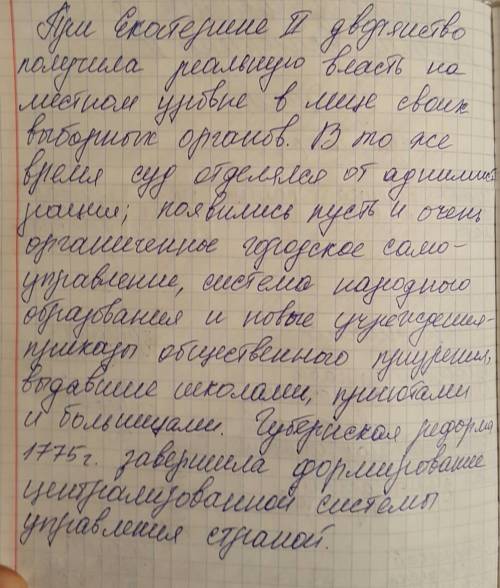 При Екатерине II дворянство
получила реальную власть на
местном уровне в лице своих
выборных органов. В то же
время суд отделялся от админист
рации; появились пусть и очень
ограниченное городское само-
управление, система народного
образования и новые учреждения-
приказы общественного призрения,
выдавшие школами, приютами
и больницами. Губернская реформа
1775г. завершила формирование
централизованной системы
управления страной.